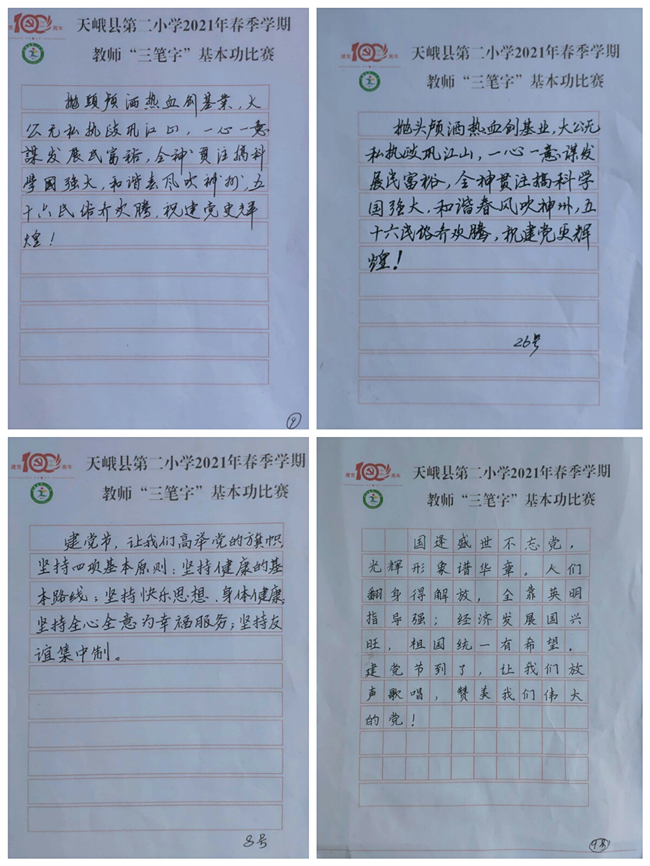 天峨县第二小学2021年春季学期
教师“三笔字”基本功比赛
抛头颅洒热血创基业,大
公无私执政巩江山,一心一意
谋发展民富裕,全神贯注搞科
学国强大,和谐春风吹神州,五
十六民俗齐欢腾,祝建党史辉
煌!
9
天峨县第二小学2021年春季学期
教师“三笔字”基本功比赛
抛头颅洒热血创基业,大公无
私执政巩江山,一心一意谋发
展民富裕,全神贯注搞科学
国强大,和谐春风吹神州,五
十六民俗齐欢腾,祝建党史辉
煌!
26号
天峨县第二小学2021年春季学期
教师“三笔字”基本功比赛
建党节,让我们高举党的旗帜
坚持四项基本原则:坚持健康的基
本路线;坚持快乐思想、身体健康
坚持全心全意为幸福服务;坚持友
谊集中制。
8号
天峨县第二小学2021年春季学期
教师“三笔字”基本功比赛
国逢盛世不忘党,
光辉形象谱华章。人们
翻身得解放,全靠英明
指导强;经济发展国兴
旺,祖国统一有希望。
建党节到了,让我们放
声歌唱,赞美我们伟大
的党!